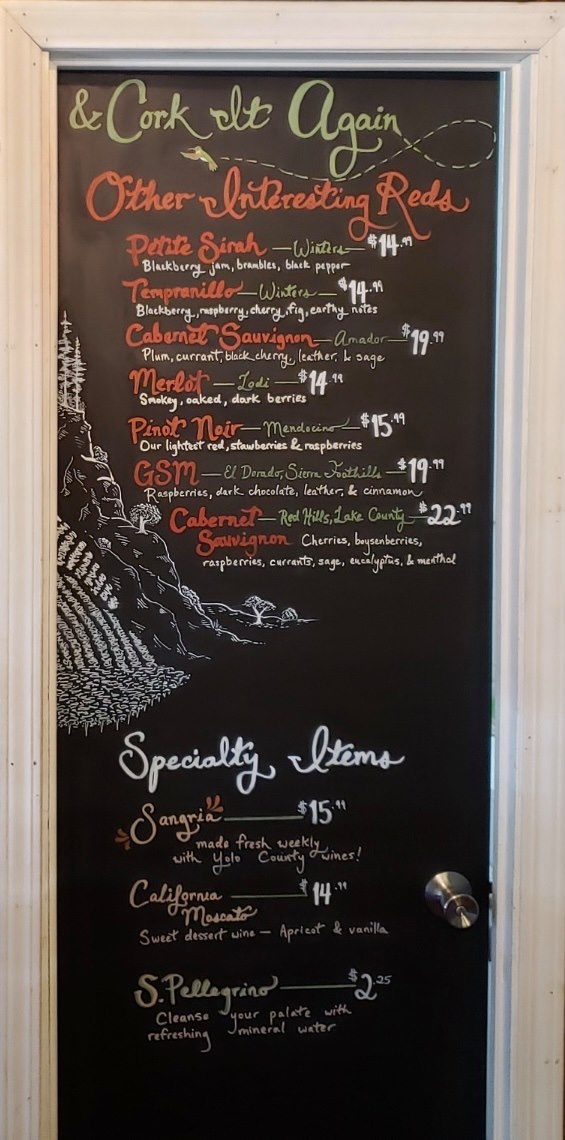 & Cork It Again
Other Interesting Reds
Petite Sirah — Winters — $14.99
Blackberry jam, brambles, black pepper
Tempranillo — Winters — $14.99
Blackberry, raspberry, cherry, fig, earthy notes
Cabernet Sauvignon — Amador — $19.99
Plum, currant, black cherry, leather, & sage
Merlot — Lodi — $14.99
Smokey, oaked, dark berries
Pinot Noir — Mendocino — $15.99
Our lightest red, stawberries & raspberries
GSM — El Dorado, Sierra Foothills — $19.99
Raspberries, dark chocolate, leather, & cinnamon
Cabernet — Red Hills, Lake County — $22.99
Sauvignon Cherries, boysenberries,
raspberries, currants, sage, eucalyptus, & menthol
Specialty Items
Sangria — $15.99
made fresh weekly
with Yolo County wines!
California — $14.99
Moscato
Sweet dessert wine — Apricot & vanilla
S. Pellegrino — $2.25
Cleanse your palate with
refreshing mineral water